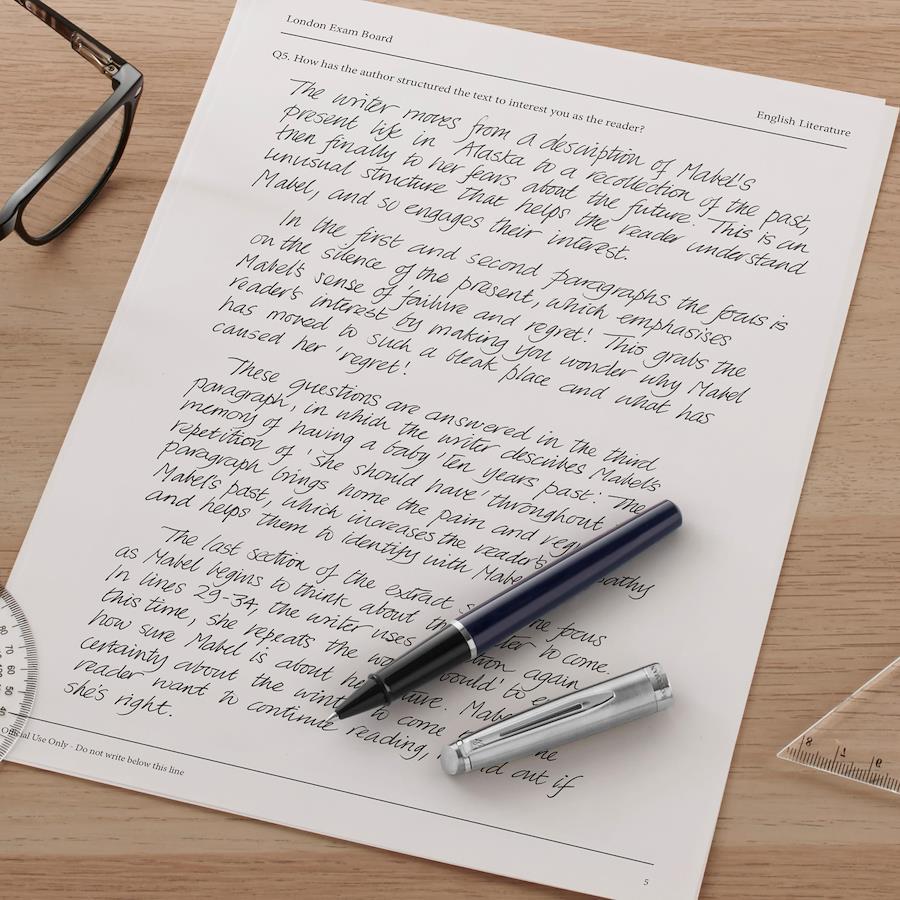 London Exam Board
Q5. How has the author structured the text to interest you as the reader?
English Literature
The writer moves from a description of Mabel's
present life in Alaska to a recollection of the past,
then finally to her fears about the future. This is an
unusual structure that helps the reader understand
Mabel, and so engages their interest.
In the first and second paragraphs the focus is
on the silence of the present, which emphasises
Mabel's sense of 'failure and regret! This grabs the
reader's interest by making you wonder why Mabel
has moved to such a bleak place and what has
caused her 'regret!
These questions are answered in the third
paragraph, in which the writer describes Mabel's
memory of having a baby 'ten years past'. The
repetition of 'she should have' throughout
paragraph brings home the pain and
Mabel's past, which increases the reader's
and helps them to identify with
The last section of the extract
as Mabel begins to think about the focus
In lines 29-34, the writer uses to come.
this time, she repeats the again
how sure Mabel is about
certainty about the to come.
reader want to continue reading, out if
she's right.
Official Use Only - Do not write below this line
5
8 7 6
80
70
60
50
40